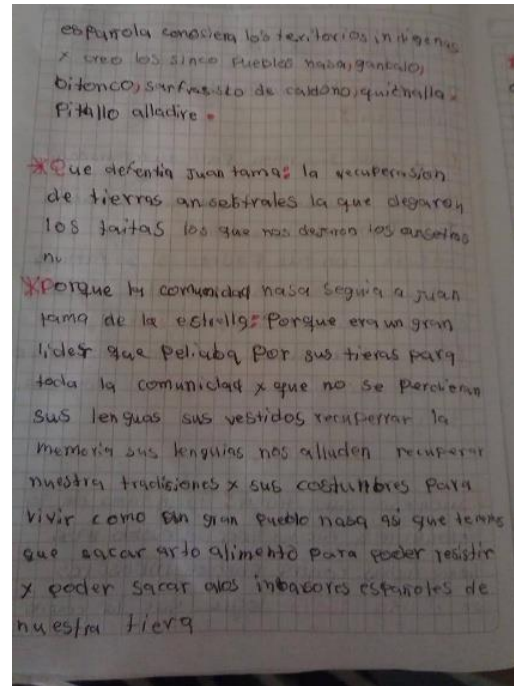 española conosiera los teritorios indigenas
x creo los sinco pueblos nasa, ganbalo,
bitonco, sanfransisco de caldono, quichalla.
Pitallo alladire.
*Que defentia Juan tama: la recuperasion
de tierras ansebtrales la que degaron
los taitas los que nos degaron los ansetros
nu
*Porque la comunidad nasa seguia a Juan
tama de la estrella: Porque era un gran
lider que peliaba por sus tieras para
toda la comunidad x que no se perdieran
sus lenguas sus vestidos recuperrar la
memoria sus lenguias nos alluden recuperar
nuestra tradisiones x sus costunbres para
vivir como un gran pueblo nasa asi que temos
que sacar arto alimento para poder resistir
x poder sacar alos inbasores españoles de
nuestra tiera